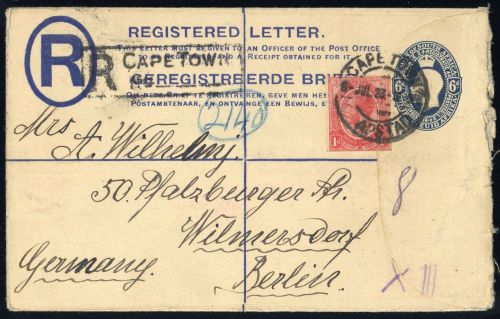 REGISTERED LETTER.
THIS LETTER MUST BE GIVEN TO AN OFFICER OF THE POST OFFICE
TO BE REGISTERED AND A RECEIPT OBTAINED FOR IT
R
R CAPETOWN
GEREGISTREERDE BRIEF
OM DEZE BRIEF TE REGISTREREN, GEVE MEN HEM
POSTAMBTENAAR, EN ONTVANGE EEN BEWIJS,
CAPETOWN
6d 6d
1d
Mrs A. Wilhelmy.
50. Pfalzburger Str.
Wilmersdorf
Germany. Berlin.
8
X III